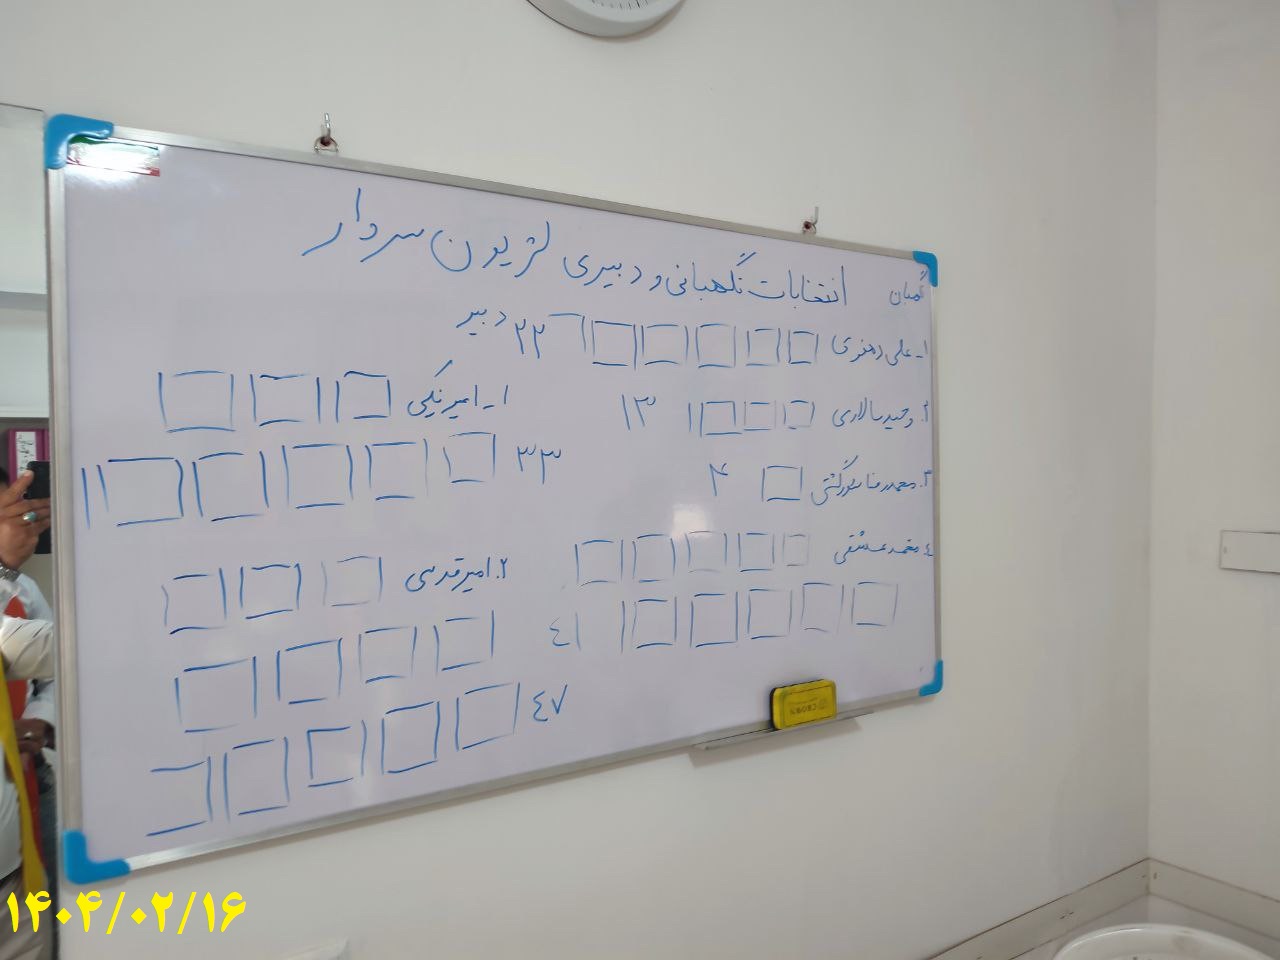 انتخابات نگهبانی و دبیری لژیون سردار
نگهبان
۱- علی دهنری ۲۲
۲. وحید سالاری ۱۳
۳. محمدرضا ۴
٤. محمد عشقی
٤۱
دبیر
۱- امیر نیکی
۳۳
۲. امیر قدسی
٤۷
CROWN
۱۴۰۴/۰۲/۱۶